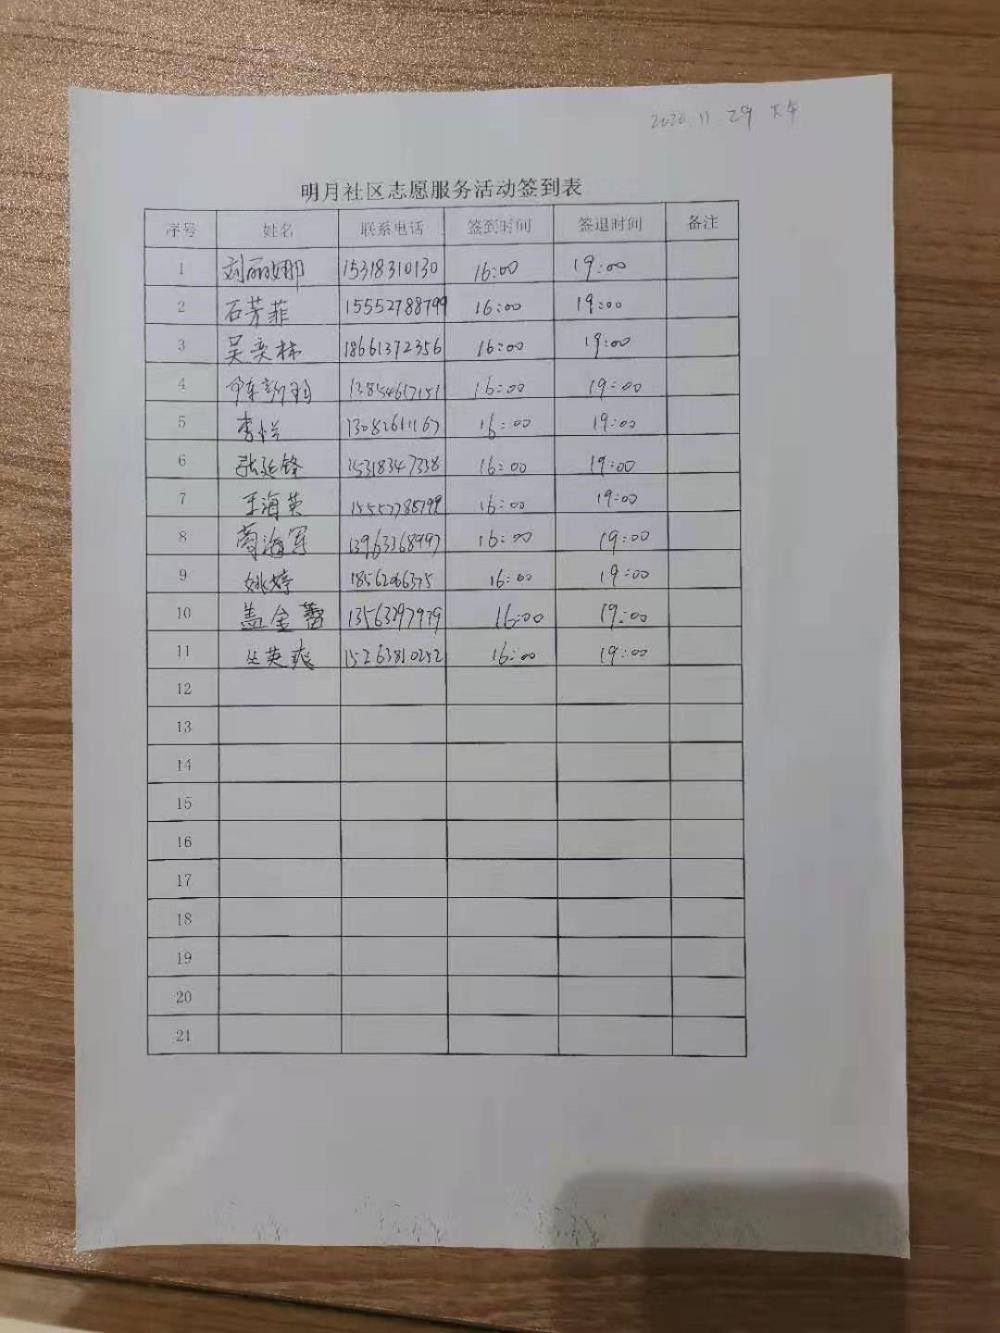 2020.11.29 下午
明月社区志愿服务活动签到表
序号 姓名 联系电话 签到时间 签退时间 备注
1 刘丽娜 15318310130 16:00 19:00
2 石芳菲 15552788799 16:00 19:00
3 吴奕栋 18661372356 16:00 19:00
4 13854617151 16:00 19:00
5 李怡 13082611167 16:00 19:00
6 张延锋 15318347338 16:00 19:00
7 王海英 16:00 19:00
8 海军 16:00 19:00
9 姚婷 16:00 19:00
10 盖金蕾 13563297979 16:00 19:00
11 丛英爽 15263810252 16:00 19:00
12
13
14
15
16
17
18
19
20
21